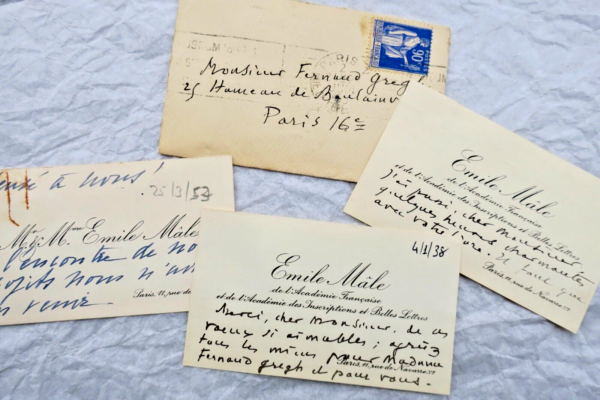 PARIS
90c
Monsieur Fernand Gregh
25 Hameau de Boulainv
Paris 16e
Emile Mâle
de l'Académie Française
et de l'Académie des Inscriptions et Belles Lettres
J'ai passé, cher Monsieur,
quelques heures charmantes
avec votre
Paris, 11, rue de Navarre. Vᵉ
à nous!
25/3/53
Mr & Mme Emile Mâle
l'encontre de no
nous n'av
venir
Paris, 11, rue de
4/1/38
Emile Mâle
de l'Académie Française
et de l'Académie des Inscriptions et Belles Lettres
Merci, cher Monsieur, de ces
vœux si aimables; agréez
tous les miens pour Madame
Paris, 11, rue de Navarre. Vᵉ
Fernand Gregh et pour vous.